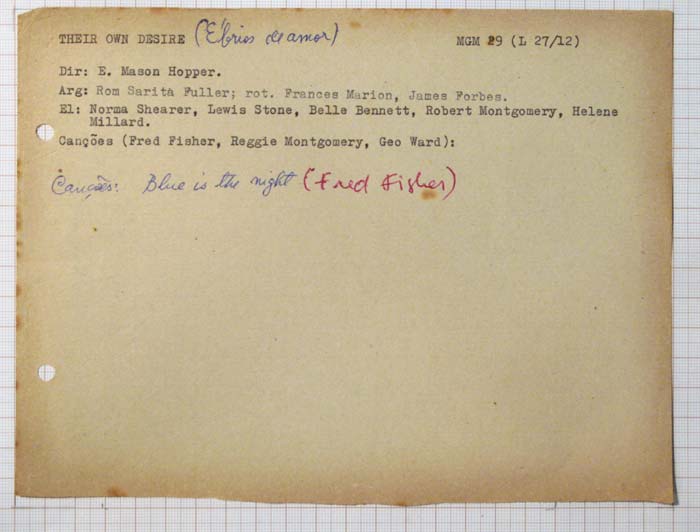 THEIR OWN DESIRE (Ébrios de amor) MGM 29 (L 27/12)
Dir: E. Mason Hopper.
Arg: Rom Sarita Fuller; rot. Frances Marion, James Forbes.
El: Norma Shearer, Lewis Stone, Belle Bennett, Robert Montgomery, Helene
Millard.
Canções (Fred Fisher, Reggie Montgomery, Geo Ward):
Canções: Blue is the night (Fred Fisher)